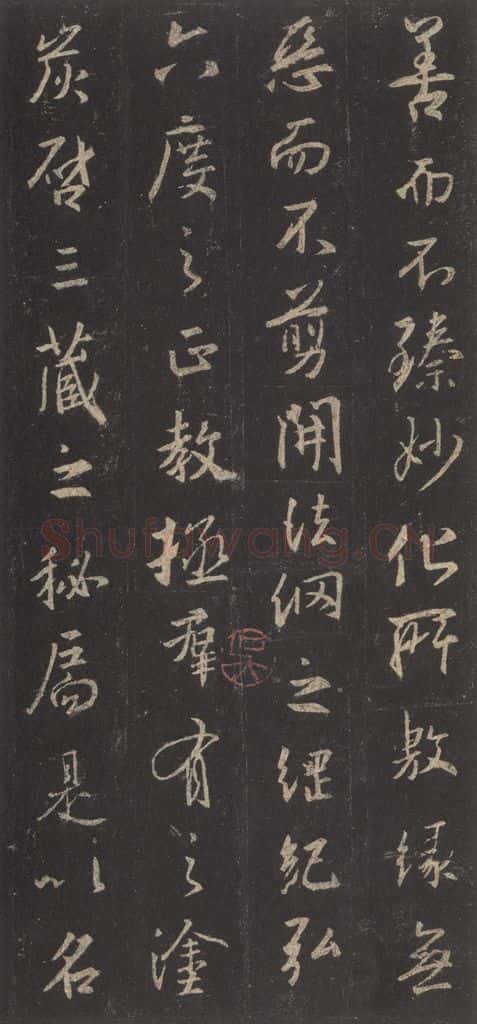 善而不臻妙化所敷緣無
惡而不剪開法網之綱紀弘
六度之正教拯羣有之塗
炭啓三藏之秘扃是以名
Shufawang.CN